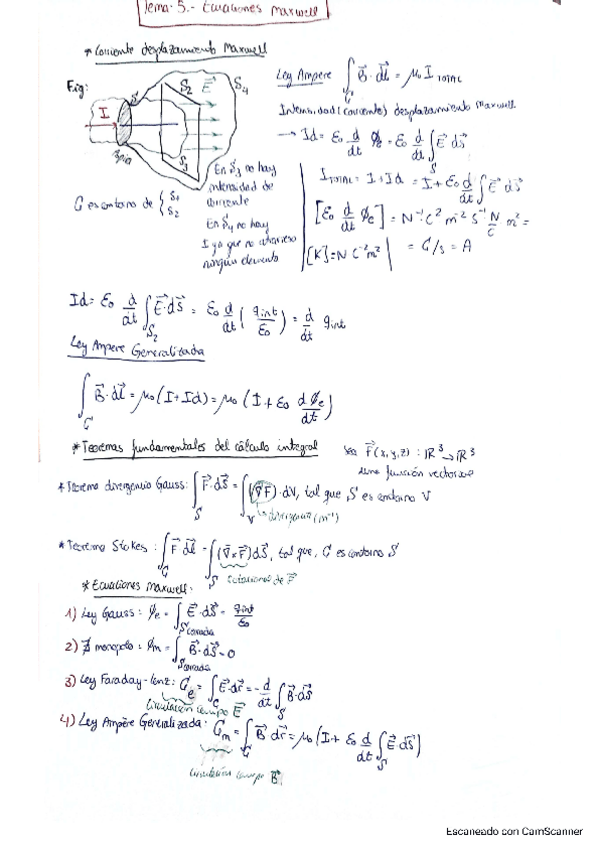 Tema 5.- Ecuaciones Maxwell
* Corriente desplazamiento Maxwell
Fig:
I
S
S2
E⃗
S4
S3
C es contorno de { S1
S2
En S3 no hay
intensidad de
corriente
En S4 no hay
I ya que no atraviesa
ningún elemento
Ley Ampere ∫C B⃗·dl⃗ = μ0 I TOTAL
Intensidad (corriente) desplazamiento Maxwell.
→ Id = ε0 d/dt ϕe = ε0 d/dt ∫S E⃗ dS⃗
ITOTAL = I + Id = I + ε0 d/dt ∫ E⃗ dS⃗
[ε0 d/dt ϕe] = N⁻¹ C² m⁻² S⁻¹ N/C m² =
[K] = N C⁻² m² = C/s = A
Id = ε0 d/dt ∫S2 E⃗·dS⃗ = ε0 d/dt (qint/ε0) = d/dt qint
Ley Ampere Generalizada
∫C B⃗·dl⃗ = μ0 (I + Id) = μ0 (I + ε0 dϕe/dt)
* Teoremas fundamentales del cálculo integral
Sea F⃗(x,y,z) : ℝ³ → ℝ³
función vectorial
* Teorema divergencia Gauss: ∫S F⃗·dS⃗ = ∫V (∇⃗F)·dV, tal que S es contorno V
divergencia (m⁻¹)
* Teorema Stokes: ∫C F⃗ dl⃗ = ∫S (∇⃗×F⃗) dS⃗, tal que, C es contorno S
de F⃗
* Ecuaciones Maxwell:
1) Ley Gauss: ϕe = ∫S cerrada E⃗·dS⃗ = qint/ε0
2) ∄ monopolo: ϕm = ∫S cerrada B⃗·dS⃗ = 0
3) Ley Faraday-Lenz: Ce = ∫C E⃗·dr⃗ = -d/dt ∫S B⃗·dS⃗
Circulación campo E⃗
4) Ley Ampère Generalizada: Cm = ∫C B⃗ dr⃗ = μ0 (I + ε0 d/dt ∫S E⃗ dS⃗)
Circulación campo B⃗
Escaneado con CamScanner